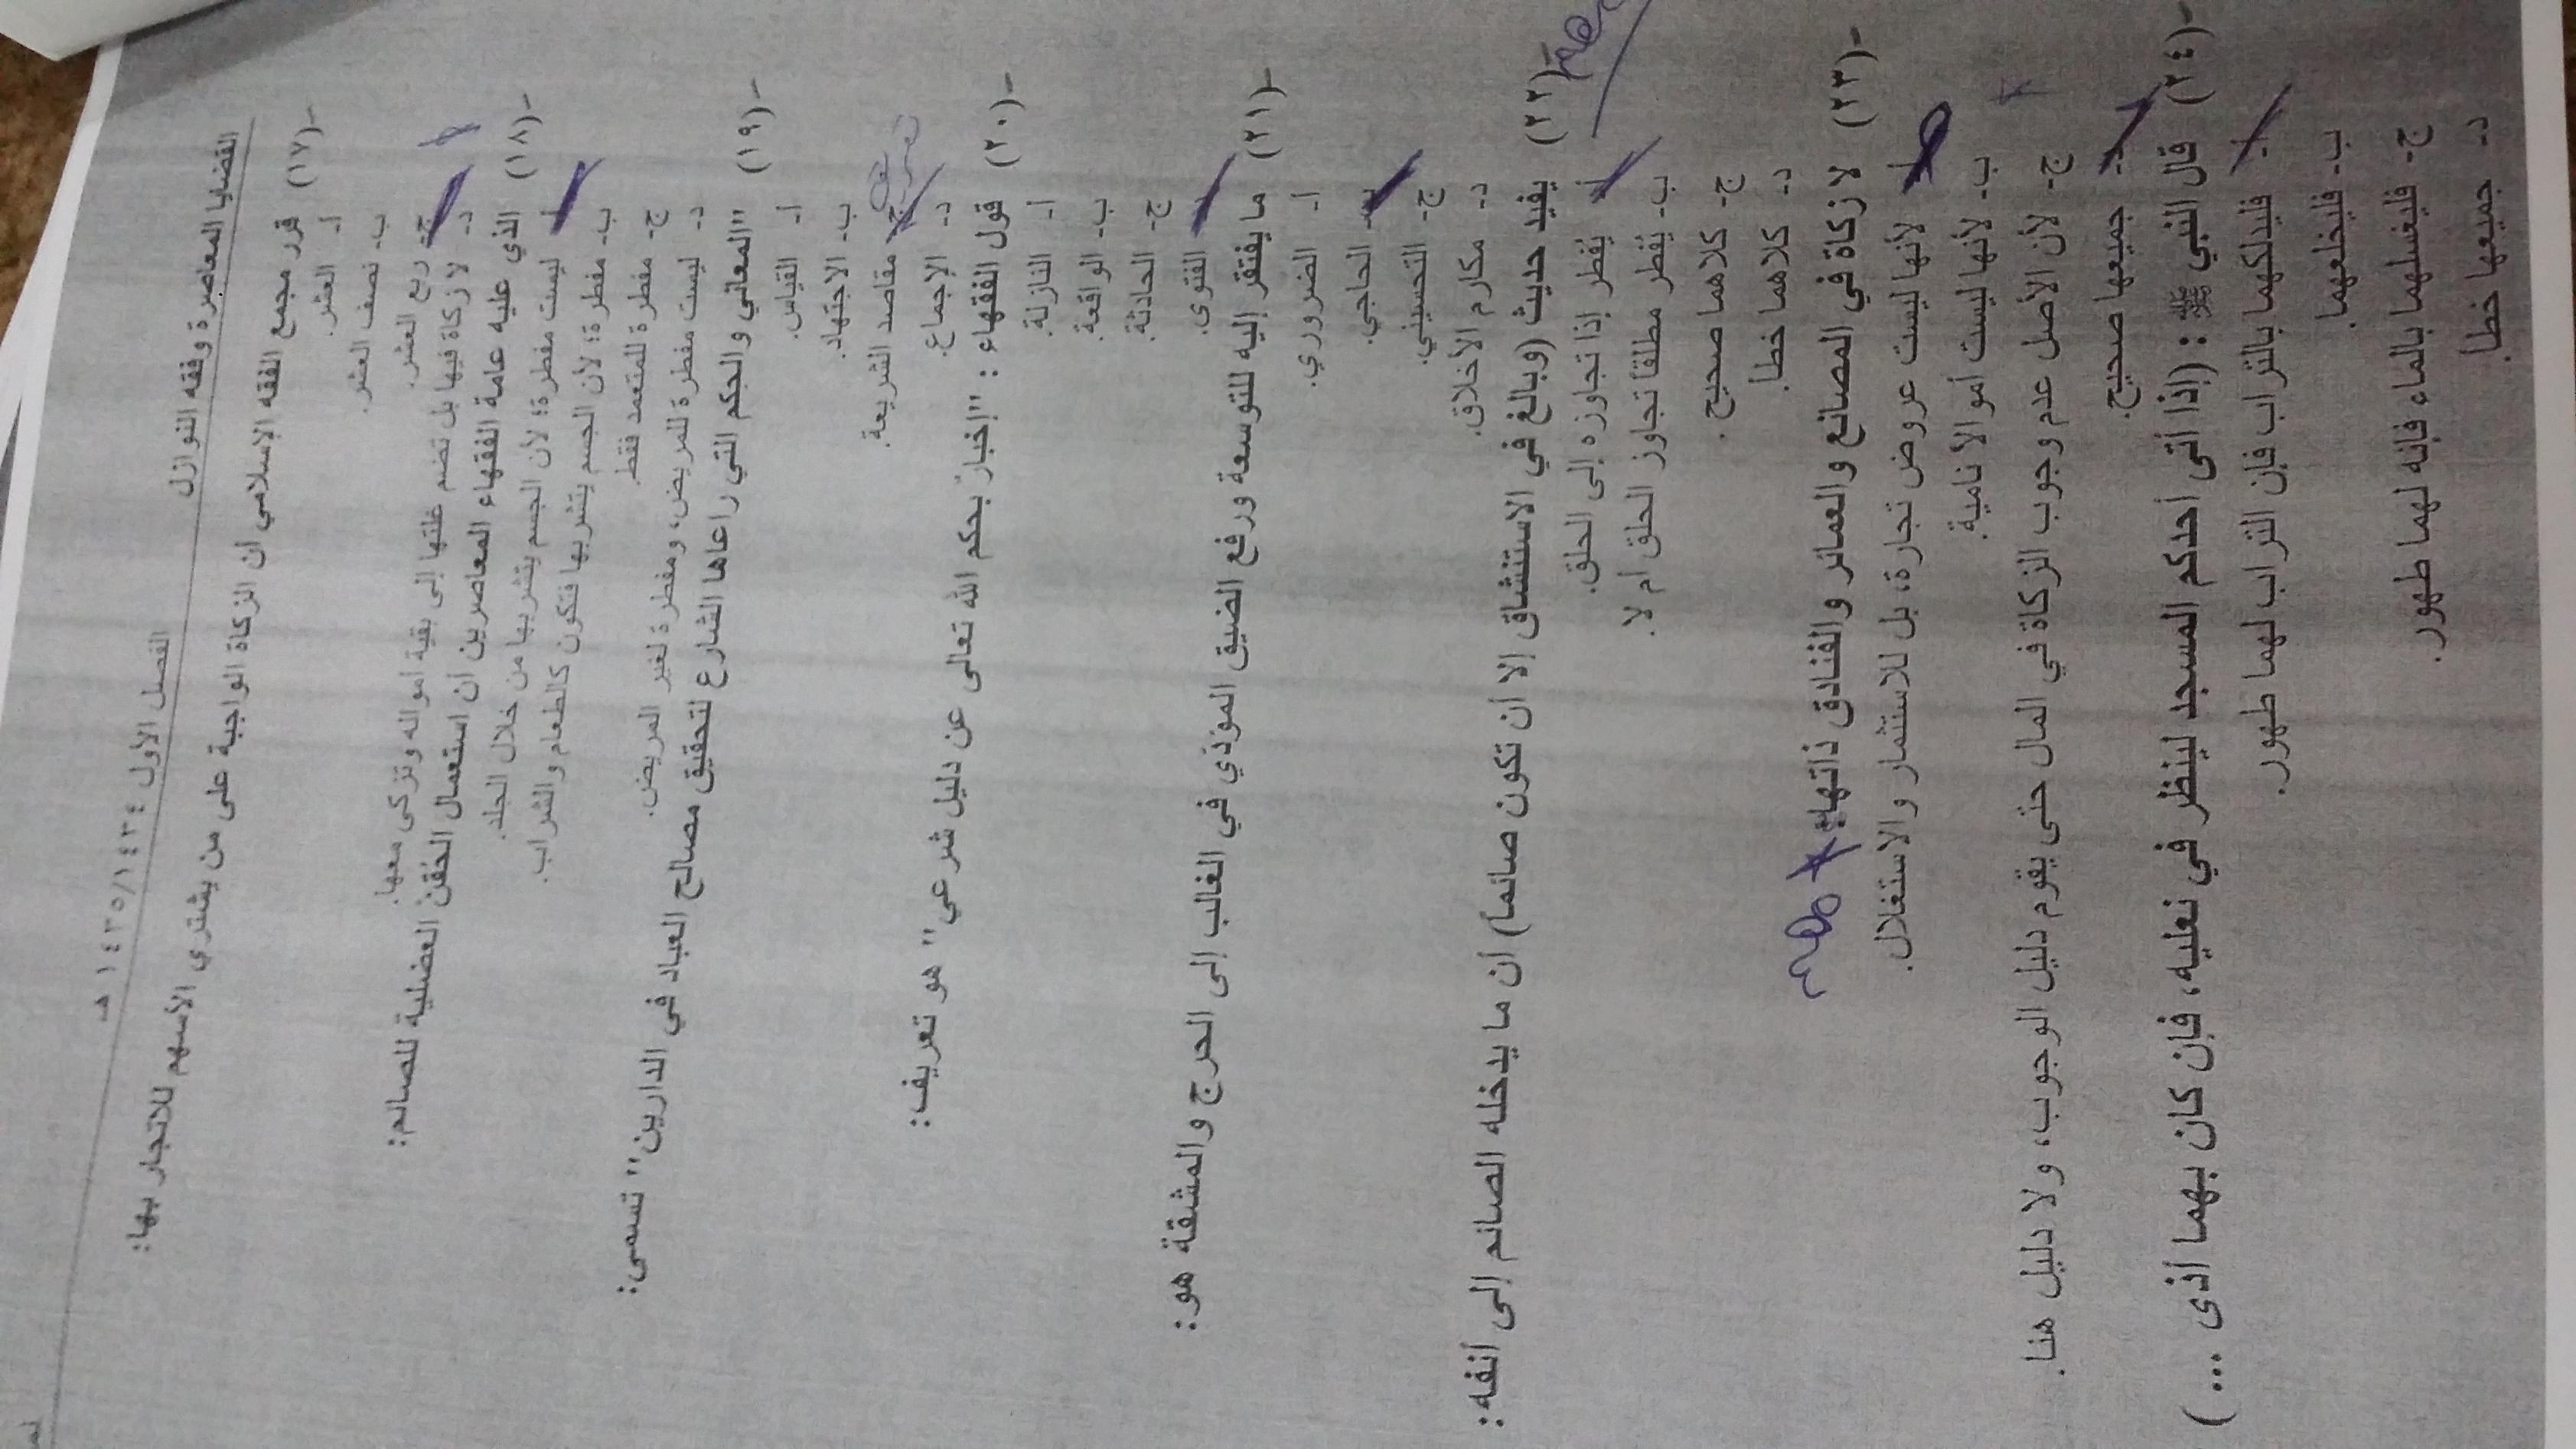 القضايا المعاصرة وفقه النوازل
الفصل الأول ١٤٣٤/١٤٣٥ هـ
(١٧)- قرر مجمع الفقه الإسلامي أن الزكاة الواجبة على من يشتري الأسهم للاتجار بها:
أ- العشر.
ب- نصف العشر.
ج- ربع العشر.
د- لا زكاة فيها بل تضم غلتها إلى بقية أمواله وتزكى معها.
(١٨)- الذي عليه عامة الفقهاء المعاصرين أن استعمال الحُقن العضلية للصائم:
أ- ليست مفطرة؛ لأن الجسم يتشربها من خلال الجلد.
ب- مفطرة؛ لأن الجسم يتشربها فتكون كالطعام والشراب.
ج- مفطرة للمتعمد فقط.
د- ليست مفطرة للمريض، ومفطرة لغير المريض.
(١٩)- "المعاني والحكم التي راعاها الشارع لتحقيق مصالح العباد في الدارين" تسمى:
أ- القياس.
ب- الاجتهاد.
ج- مقاصد الشريعة.
د- الإجماع.
(٢٠)- قول الفقهاء : "إخبارٌ بحكم الله تعالى عن دليل شرعي" هو تعريف:
أ- النازلة.
ب- الواقعة.
ج- الحادثة.
د- الفتوى.
(٢١)- ما يفتقر إليه للتوسعة ورفع الضيق المؤدي في الغالب إلى الحرج والمشقة هو:
أ- الضروري.
ب- الحاجي.
ج- التحسيني.
د- مكارم الأخلاق.
(٢٢)- يفيد حديث (وبالغ في الاستنشاق إلا أن تكون صائما) أن ما يدخله الصائم إلى أنفه:
أ- يُفطر إذا تجاوزه إلى الحلق.
ب- يُفطر مطلقا تجاوز الحلق أم لا.
ج- كلاهما صحيح.
د- كلاهما خطأ.
(٢٣)- لا زكاة في المصانع والعمائر والفنادق ذاتها؛
أ- لأنها ليست عروض تجارة، بل للاستثمار والاستغلال.
ب- لأنها ليست أموالا نامية.
ج- لأن الأصل عدم وجوب الزكاة في المال حتى يقوم دليل الوجوب، ولا دليل هنا.
د- جميعها صحيح.
(٢٤)- قال النبي ﷺ : (إذا أتى أحدكم المسجد لينظر في نعليه، فإن كان بهما أذى ... )
أ- فليدلكهما بالتراب فإن التراب لهما طهور.
ب- فليخلعهما.
ج- فليغسلهما بالماء فإنه لهما طهور.
د- جميعها خطأ.